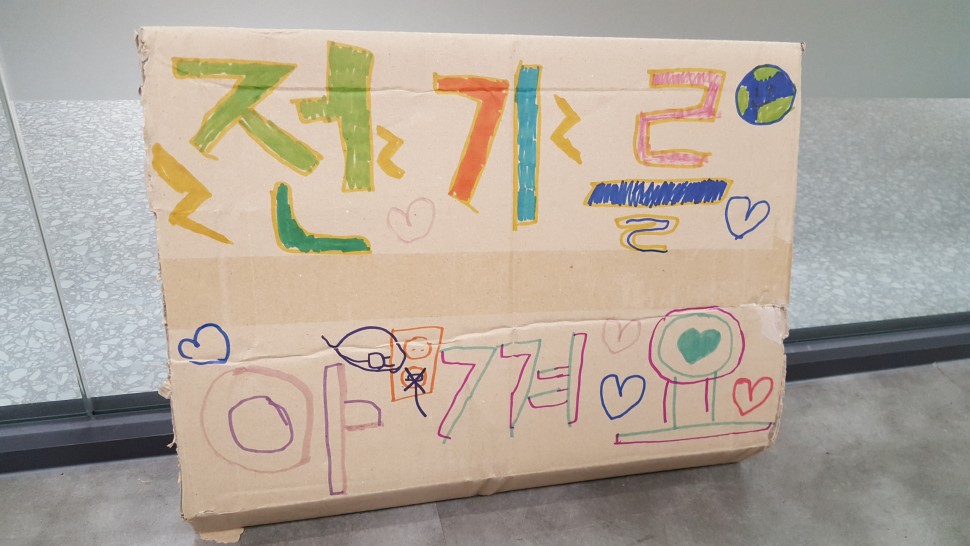 전기를
아껴요